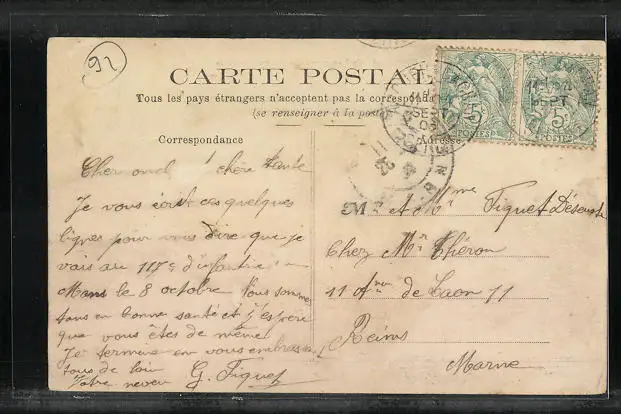 92
CARTE POSTALE
Tous les pays étrangers n'acceptent pas la correspondance
(se renseigner à la poste)
Correspondance
Adresse
Cher oncle chère tante
Je vous écrit ces quelques
lignes pour vous dire que je
vais au 117e d'infanterie
Mans le 8 octobre Nous sommes
tous en bonne santé et j'espère
que vous êtes de même
Je termine en vous embrassant
tous de loin
Votre neveu G. Fiquet
M et Mme Fiquet
Chez Mr Théron
11 Anue de Laon 11
Reims
Marne
5c
POSTES
5c
POSTES
SEPT